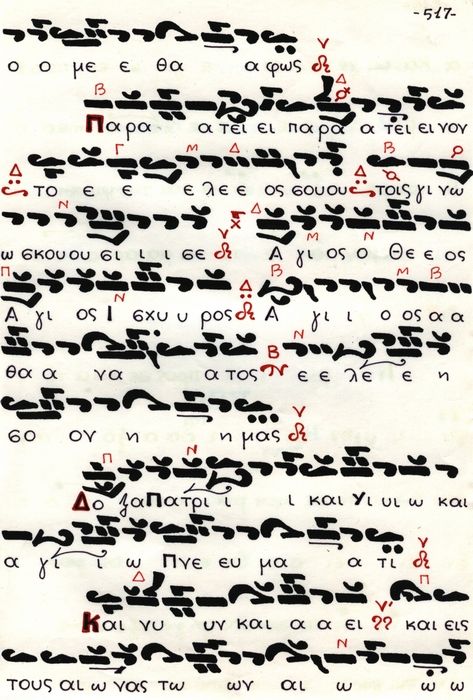 -517-
ο ο με ε θα α φως
Παρα α τει ει παρα α τει ει νον
το ε ε ε λε ε ος σου ου τοις γι νω
ω σκου ου σι ι ι σε Α γι ος ο Θε ε ος
Α γι ος Ι σχυ υ ρος Α γι ι ο ος α α
θα α να α τος ε ε λε ε η
σο ον η η μας
Δο ξα Πατρι ι ι και Υι υι ω και
α γι ι ω Πνε ευ μα α τι
Και νυ υν και α α ει και εις
τους αι ω νας τω ων αι ω ω ω